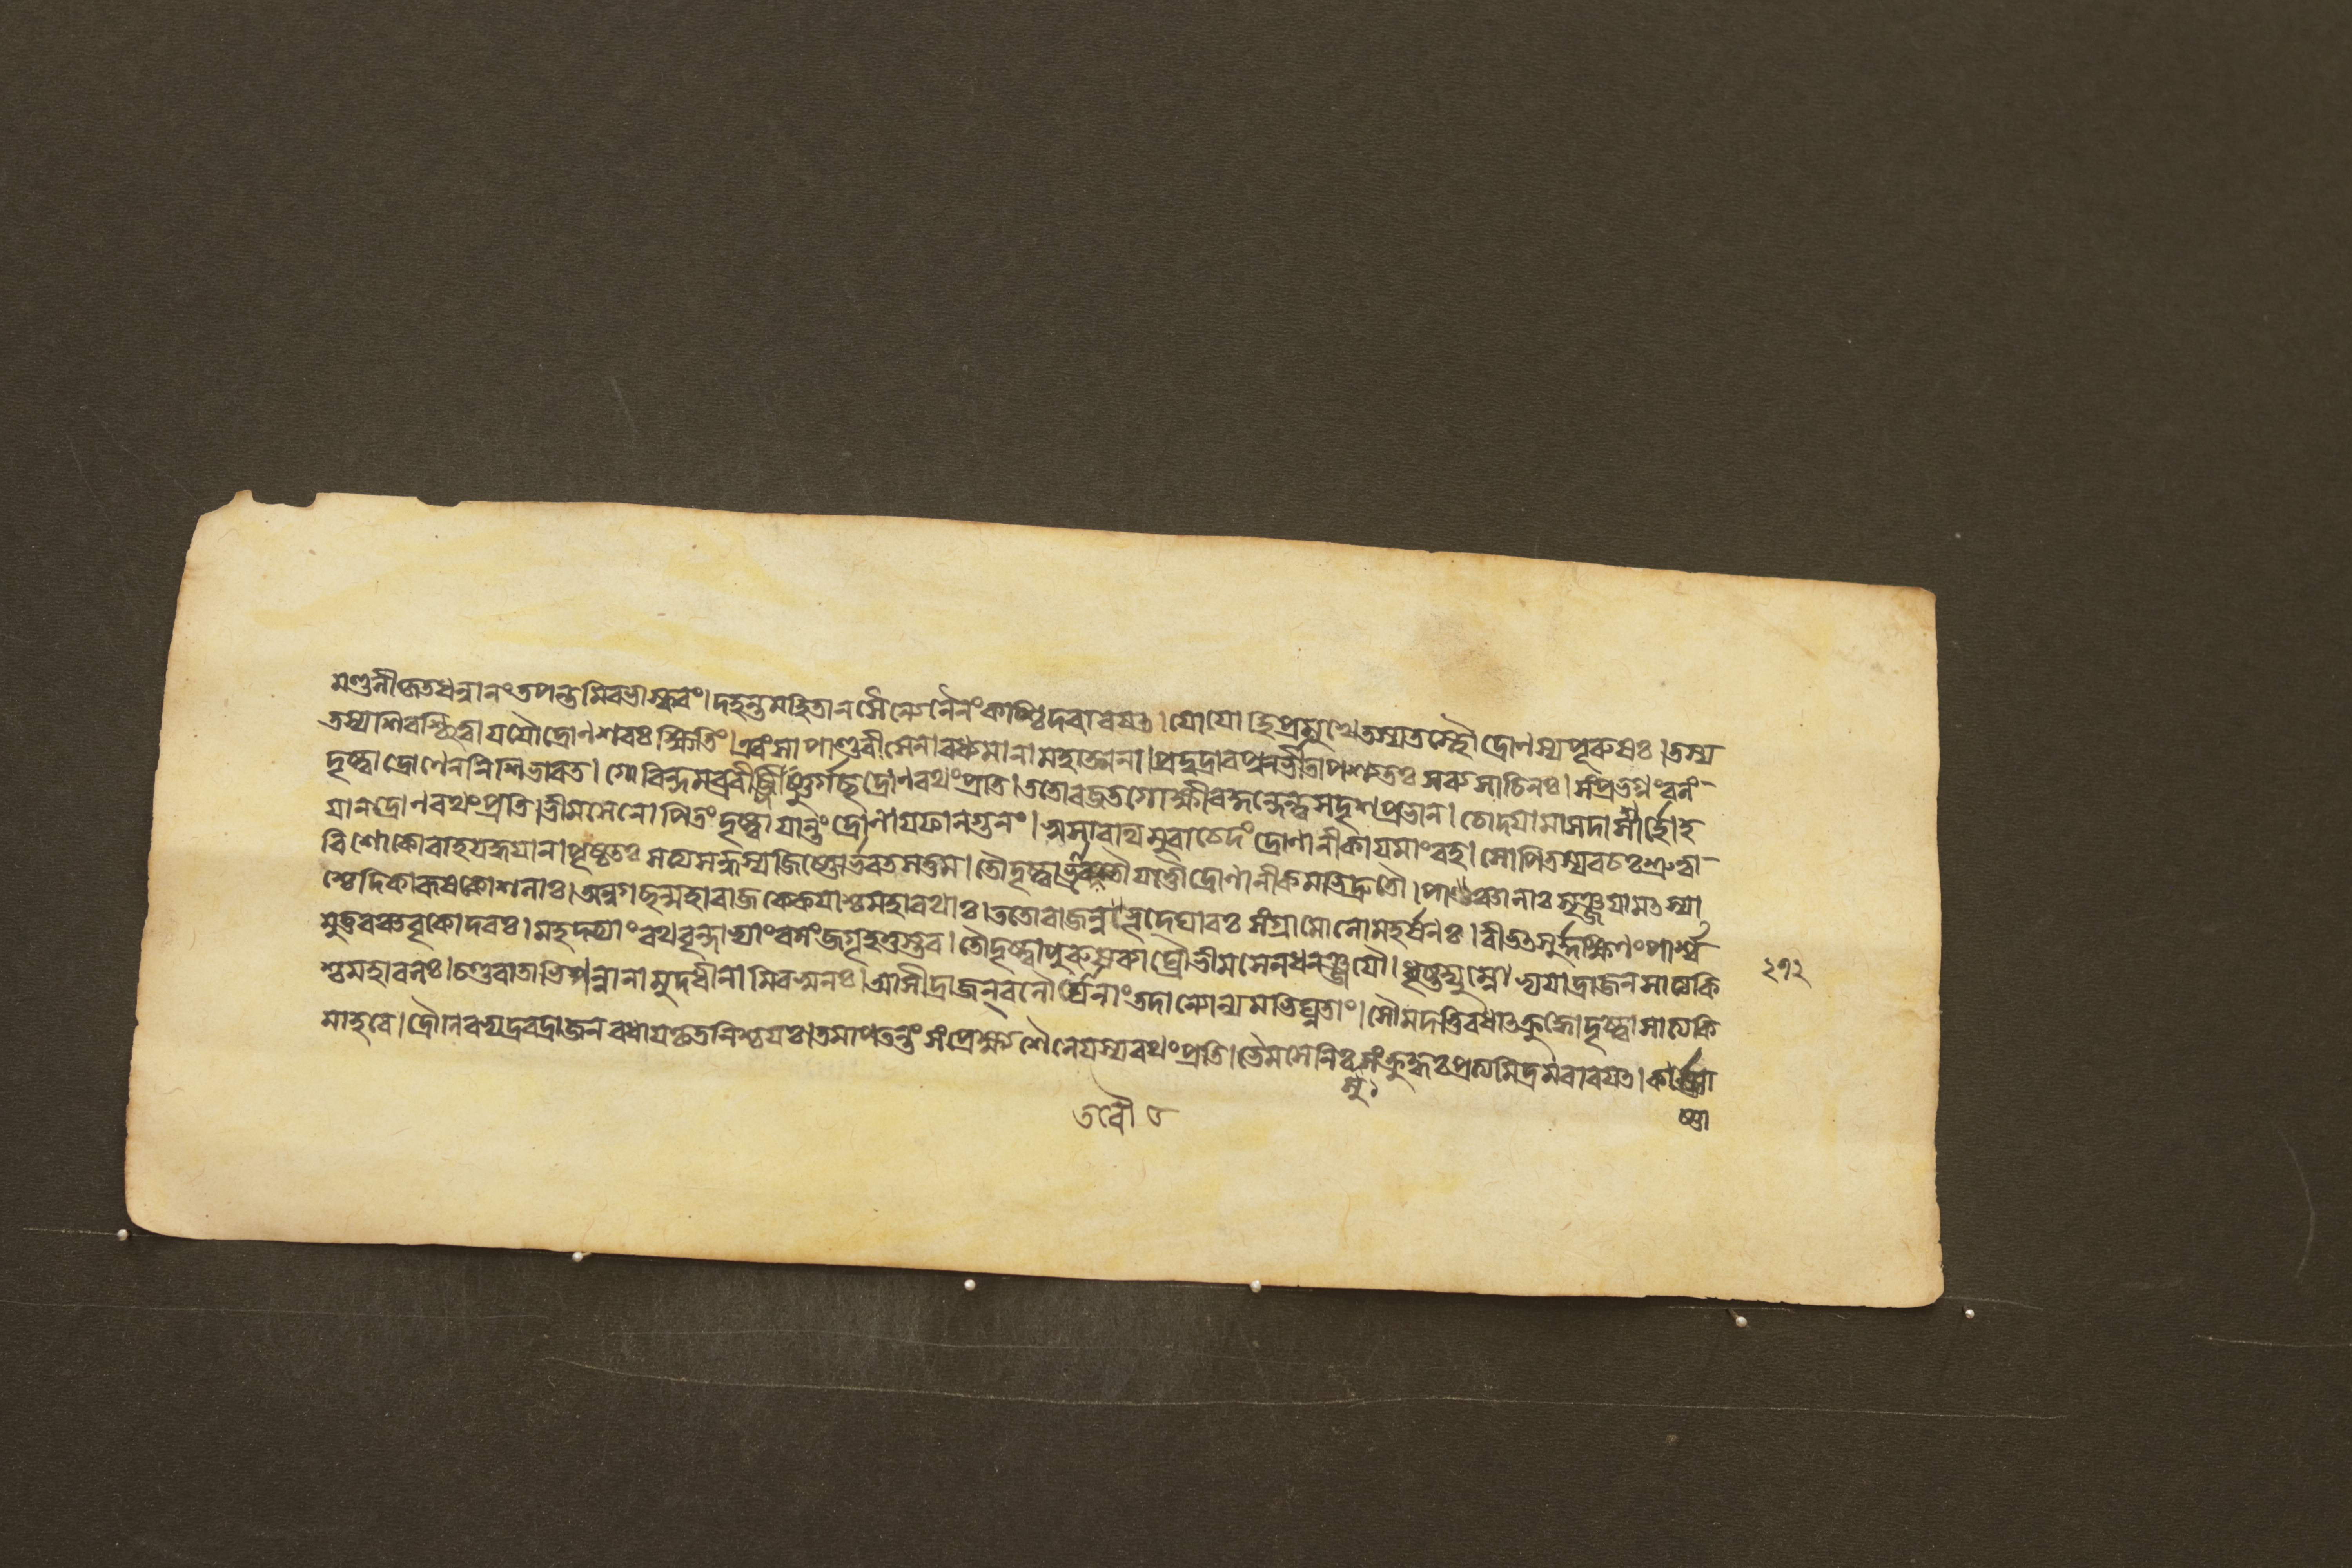 মণ্ডলীকৃতধন্বানং তপন্তমিবভাস্করং।দহন্তমহিতানসৈন্যেনৈনংকশ্চিদবারয়ত। যোযো হিপ্রমুখে তস্যতস্থৌ দ্রোণস্যপূরুষঃ।তস্য
তস্যশিরশ্ছিত্বা যযৌদ্রোণশরঃ ক্ষিতিং। এবংসা পাণ্ডবীসেনা বধ্যমানা মহাত্মনা।প্রদুদ্রাবপুনর্ভীতাপশ্যতঃ সব্যসাচিনঃ। সংপ্রভগ্নংবলং-
দৃষ্ট্বাদ্রোণেননিশিভারত। গোবিন্দমব্রবীজ্জিষ্ণুর্গচ্ছদ্রোণরথংপ্রতি।ততোরজতগোক্ষীরকুন্দেন্দুসদৃশপ্রভান। চোদয়ামাসদাশার্হো হ
য়ানদ্রোণরথংপ্রতি।ভীমসেনোপিতংদৃষ্ট্বা যান্তংদ্রোণায়ফালগুনং। স্বসারথিমুবাচেদং দ্রোণানীকায়মাংবহ। সোপিতস্যবচঃশ্রুত্বা-
বিশোকোবাহয়দ্ধয়ান।পৃষ্ঠতঃ সত্যসন্ধস্যজিষ্ণোর্ভরতসত্তম। তৌদৃষ্ট্বাভ্রাতরৌযত্তৌদ্রোণানীকমভিদ্রুতৌ। পাঞ্চালাঃ সৃঞ্জয়ামৎস্যা
শ্চেদিকারূষকোশলাঃ।অন্বগচ্ছন্মহারাজকেকয়াশ্চমহারথাঃ।ততোরাজন্নভূদ্ঘোরঃ সংগ্রামোলোমহর্ষণঃ। বীভৎসুর্দক্ষিণংপার্শ্ব
মুত্তরঞ্চবৃকোদরঃ। মহদ্ভ্যাংরথবৃন্দাভ্যাংবলংজগৃহতুস্তব। তৌদৃষ্ট্বাপুরুষব্যাঘ্রৌভীমসেনধনঞ্জয়ৌ। ধৃষ্টদ্যুম্নোভ্যয়াদ্রাজনসাত্যকি
শ্চমহাবলঃ।চণ্ডবাতাভিপন্নানামুদধীনামিবস্বনঃ। আসীদ্রাজনবলৌঘানাংতদান্যোন্যমভিঘ্নতাং। সৌমদত্তিবধাৎক্রুদ্ধো দৃষ্ট্বাসাত্যকি
মাহবে। দ্রৌণিরভ্যদ্রবদ্রাজনবধায়কৃতনিশ্চয়ঃ।তমাপতন্তং সংপ্রেক্ষ্য শৈনেয়স্যরথংপ্রতি। ভৈমসেনিঃ সংক্রুদ্ধঃপ্রত্যমিত্রমবারয়ত। কার্ষ্ণা
সু২
২१२